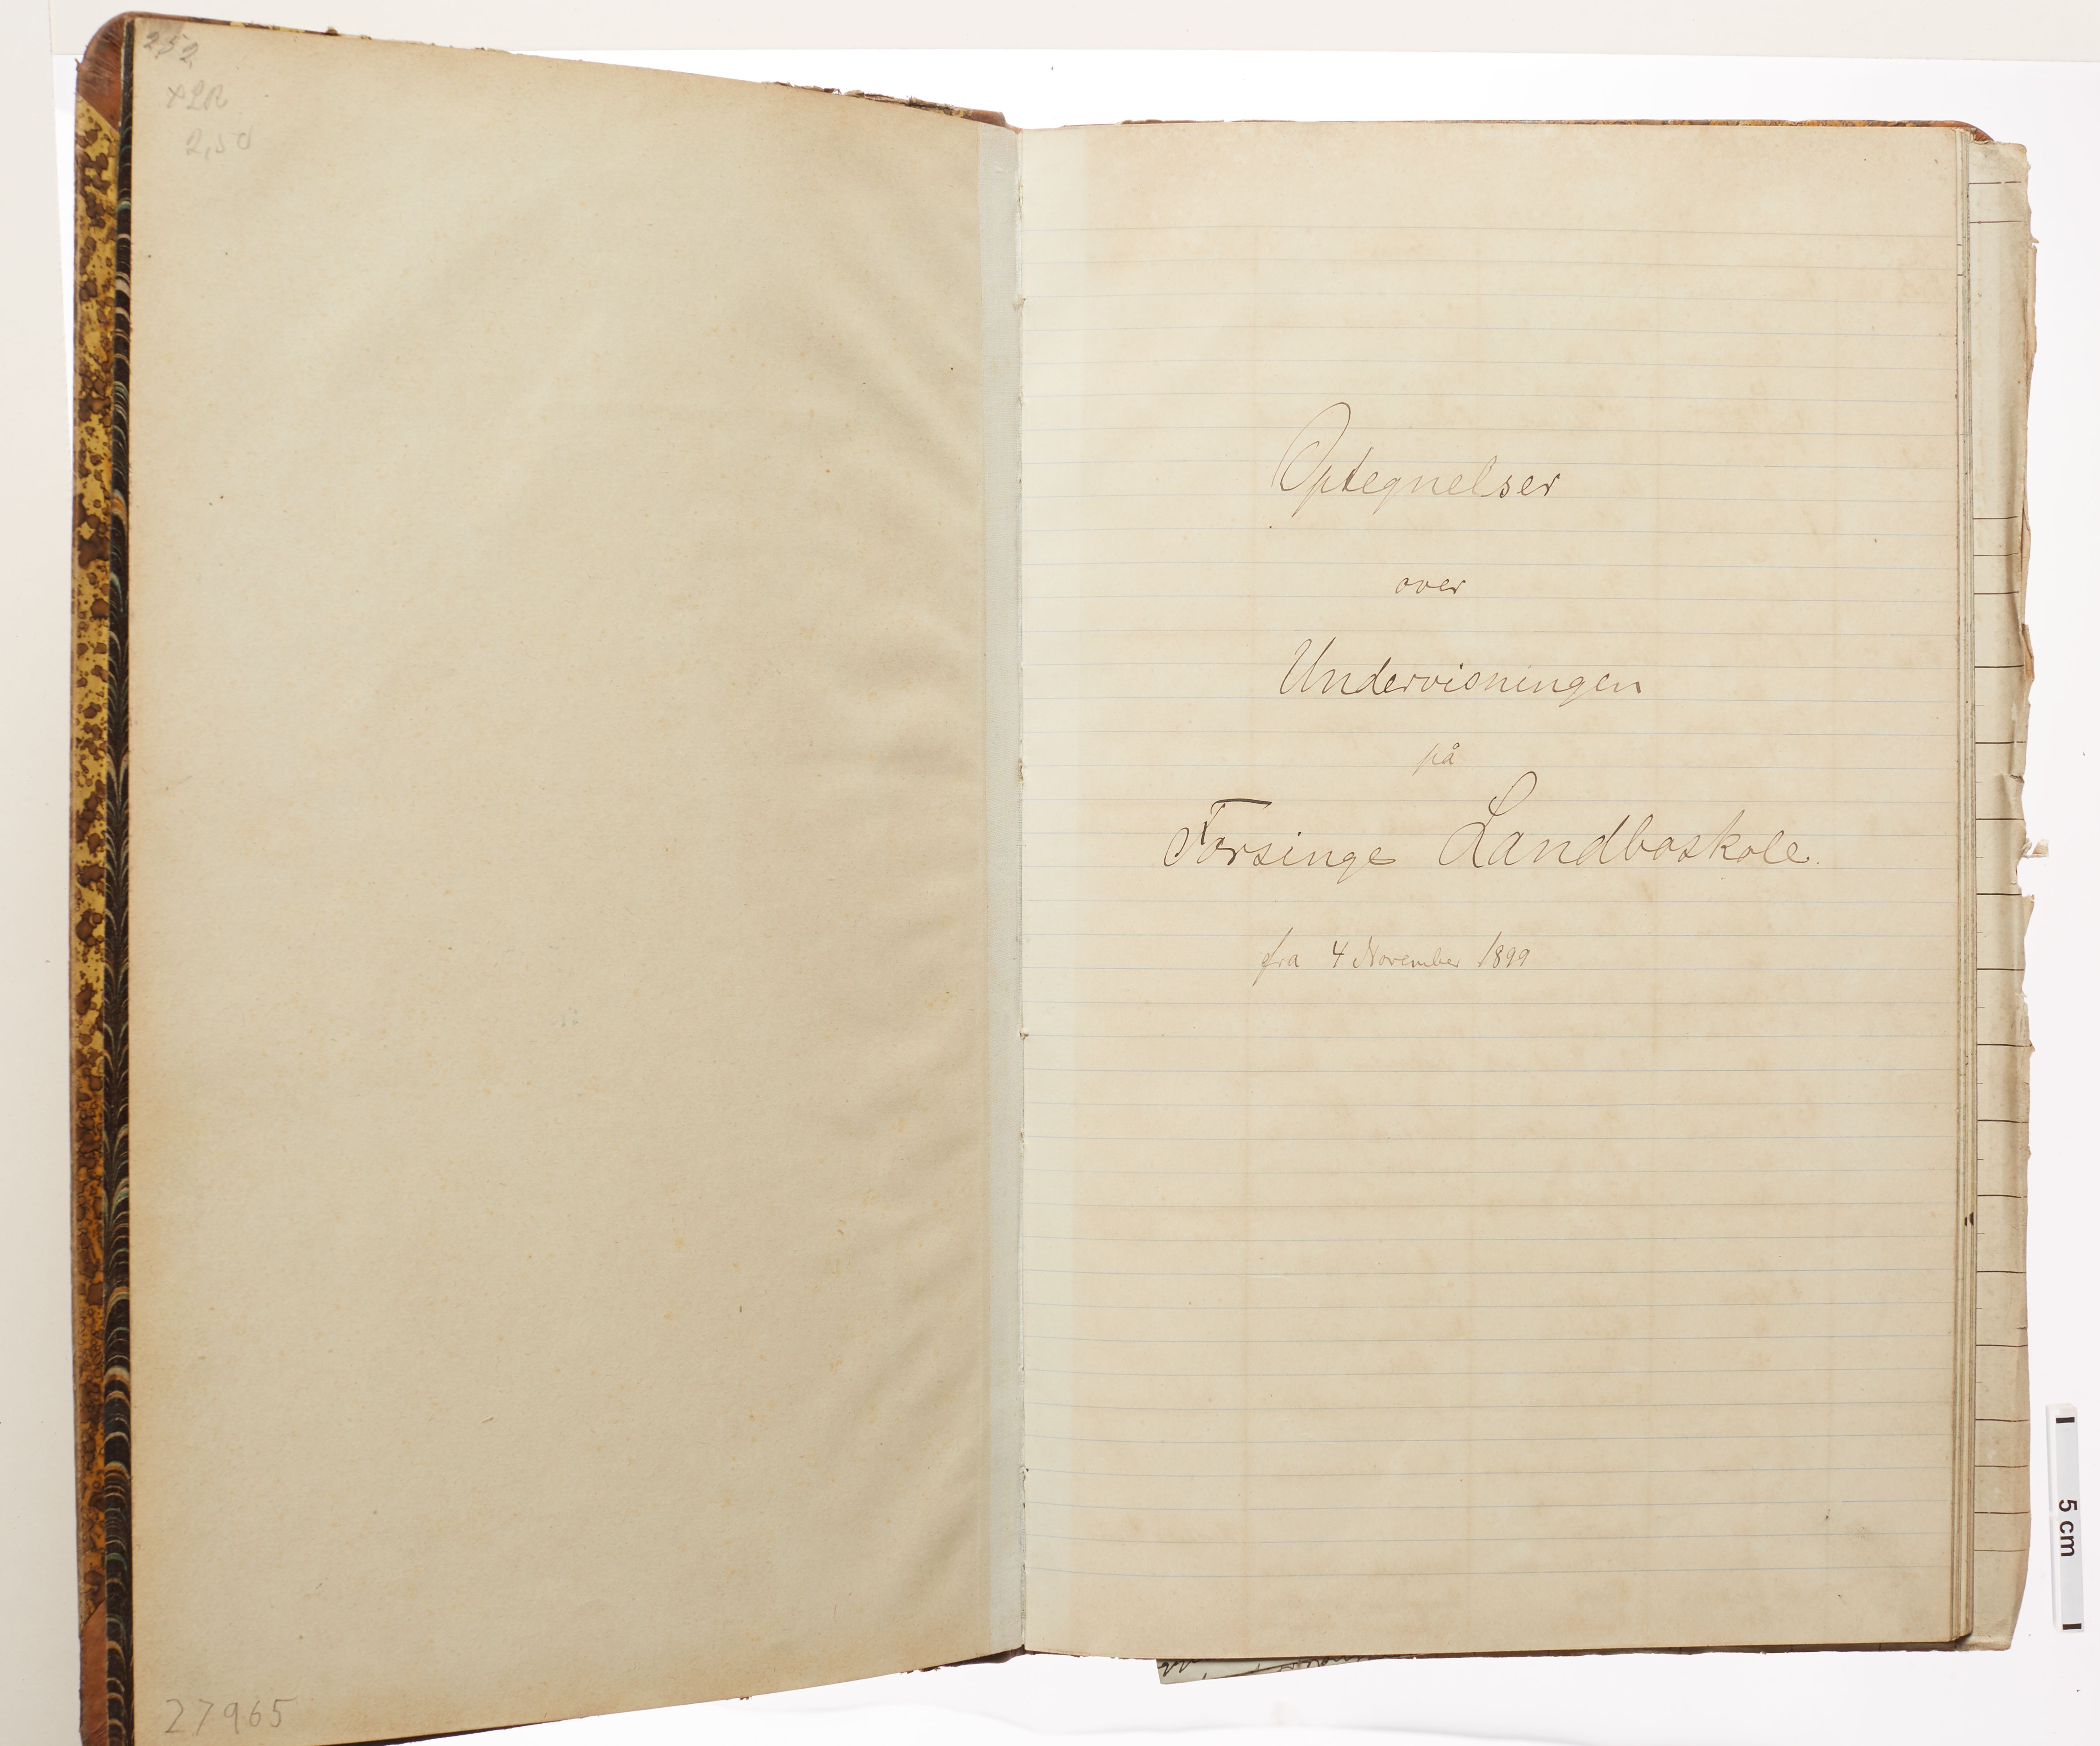 252
2,50
27965
Optegnelser
over
Undervisningen
på
Forsinge Landboskole.
fra 4 November 1899
5 cm